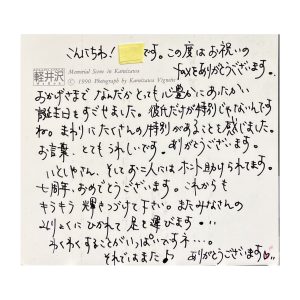 こんにちわ！ です。この度はお祝いの
faxをありがとうございます。
軽井沢
Memorial Stone in Karuizawa
© 1990 Photograph by Karuizawa Vignette
おかげさまで なんだかとっても心豊かにあたたかい
誕生日をすごせました。彼氏だけが特別じゃないんです
ね。まわりにたくさんの特別があることを感じました。
お言葉、とてもうれしいです。ありがとうございます。
いとしやさん、そしてお二人にはホント助けられてます。
七周年、おめでとうございます。これからも
キラキラ輝きつづけて下さい。またみなさんの
みりょくにひかれて足を運びます・・・
わくわくすることがいっぱいですネ・・・。
それではまた♪ ありがとうございます